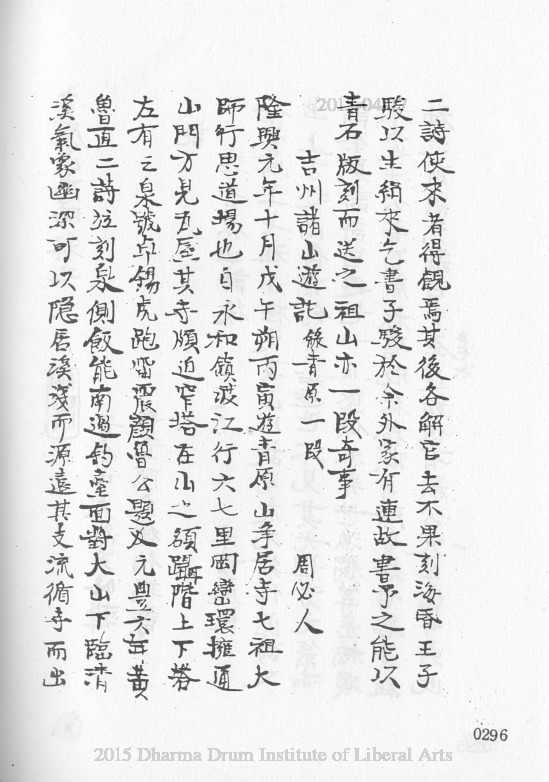 二詩俠來者得覩焉其後各解官去不果刻海昏王子
駿以生絹來乞書子駿於余外家有連故書予之能以
青石版刻而送之祖山亦一段奇事
吉州諸山遊記 錄青原一段 周必人
隆興元年十月戊午朔丙寅遊青原山淨居寺七祖大
師行思道場也自永和嶺渡江行六七里岡巒環擁通
山門方見瓦屋其寺頗迫窄塔在山之額躡階上下塔
左有之泉號卓錫虎跑雷震顏魯公題及元豊六年黃
魯直二詩竝刻泉側飯能南過釣臺面對大山下臨清
溪氣象幽深可以隐居溪淺而源遠其支流循寺而出
0296
2015 Dharma Drum Institute of Liberal Arts